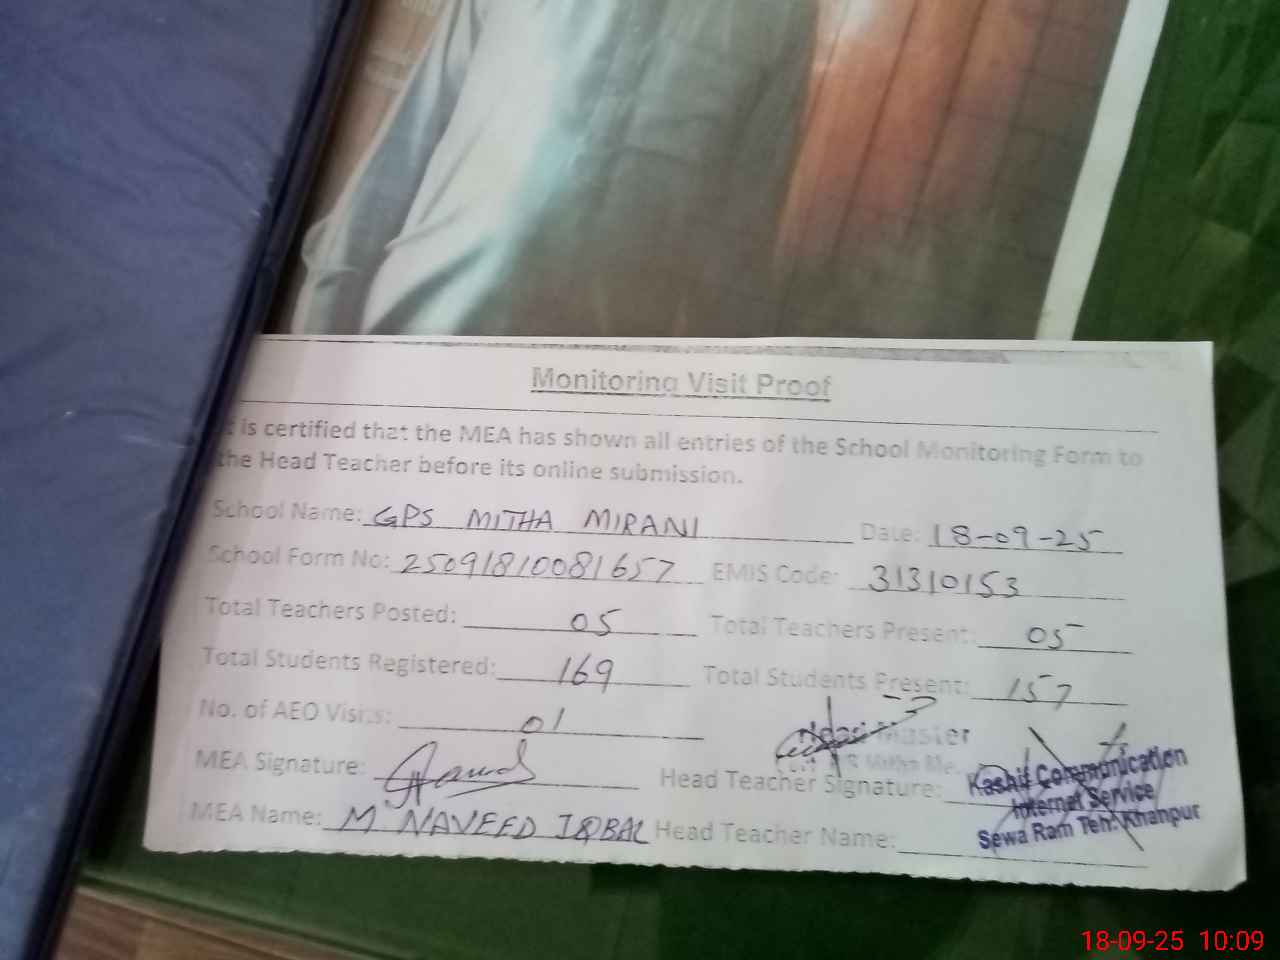 Monitoring Visit Proof
It is certified that the MEA has shown all entries of the School Monitoring Form to
the Head Teacher before its online submission.
School Name: GPS MITHA MIRANI Date: 18-09-25
School Form No: 25091810081657 EMIS Code: 31310153
Total Teachers Posted: 05 Total Teachers Present: 05
Total Students Registered: 169 Total Students Present: 157
No. of AEO Visits: 01
Master
MEA Signature: Head Teacher Signature:
Kashif Communication
Internet Service
Sewa Ram Teh: Khanpur
MEA Name: M NAVEED IQBAL Head Teacher Name:
18-09-25 10:09